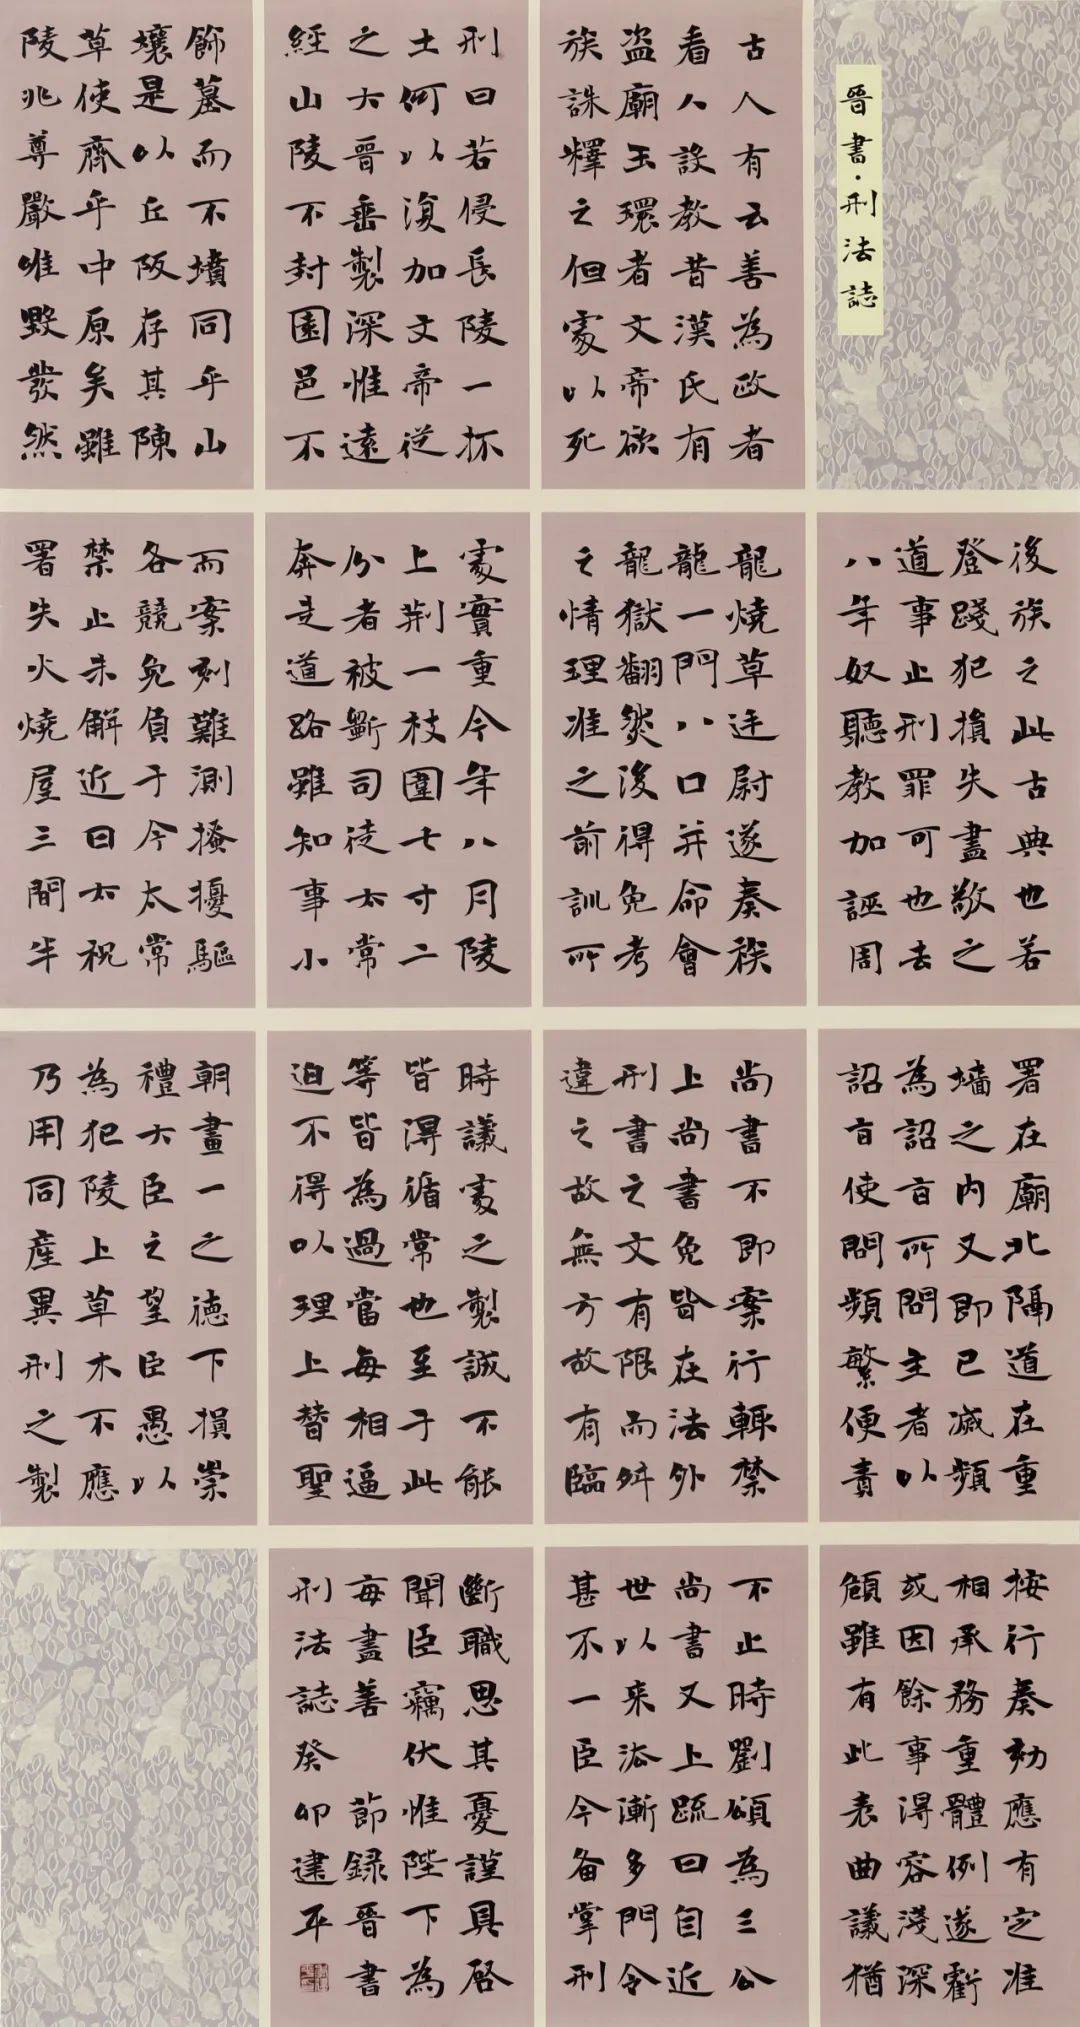 晉書·刑法誌
古人有云善為政者
看人設教昔漢氏有
盜廟玉環者文帝欲
族誅釋之但處以死
刑曰若侵長陵一抔
土何以復加文帝從
之大晉垂製深惟遠
經山陵不封園邑不
飾墓而不墳同乎山
壤是以丘阪存其陳
草使齊乎中原矣雖
陵兆尊嚴唯毀發然
後族之此古典也若
登踐犯損失盡敬之
道事止刑罪可也去
八年奴聽教加誣周
龍燒草廷尉遂奏族
龍一門八口并命會
龍獄翻然後得免考
之情理准之前訓所
處實重今年八月陵
上荆一枝圍七寸二
分者被斷司徒太常
奔走道路雖知事小
而案劾難測搔擾驅
各競免負于今太常
禁止未解近日太祝
署失火燒屋三間半
署在廟北隔道在重
墻之內又即已滅頻
為詔旨所問主者以
詔旨使問頻繁便責
尚書不即案行輒禁
上尚書免皆在法外
刑書之文有限而舛
違之故無方故有臨
時議處之製誠不能
皆得循常也至于此
等皆為過當每相逼
迫不得以理上替聖
朝畫一之德下損崇
禮大臣之望臣愚以
為犯陵上草木不應
乃用同產異刑之製
按行奏劾應有定准
相承務重體例遂虧
或因餘事得容淺深
頠雖有此表曲議猶
不止時劉頌為三公
尚書又上疏曰自近
世以來法漸多門令
甚不一臣今备掌刑
斷職思其憂謹具啓
聞臣竊伏惟陛下為
每盡善 節録晉書
刑法誌癸卯建平